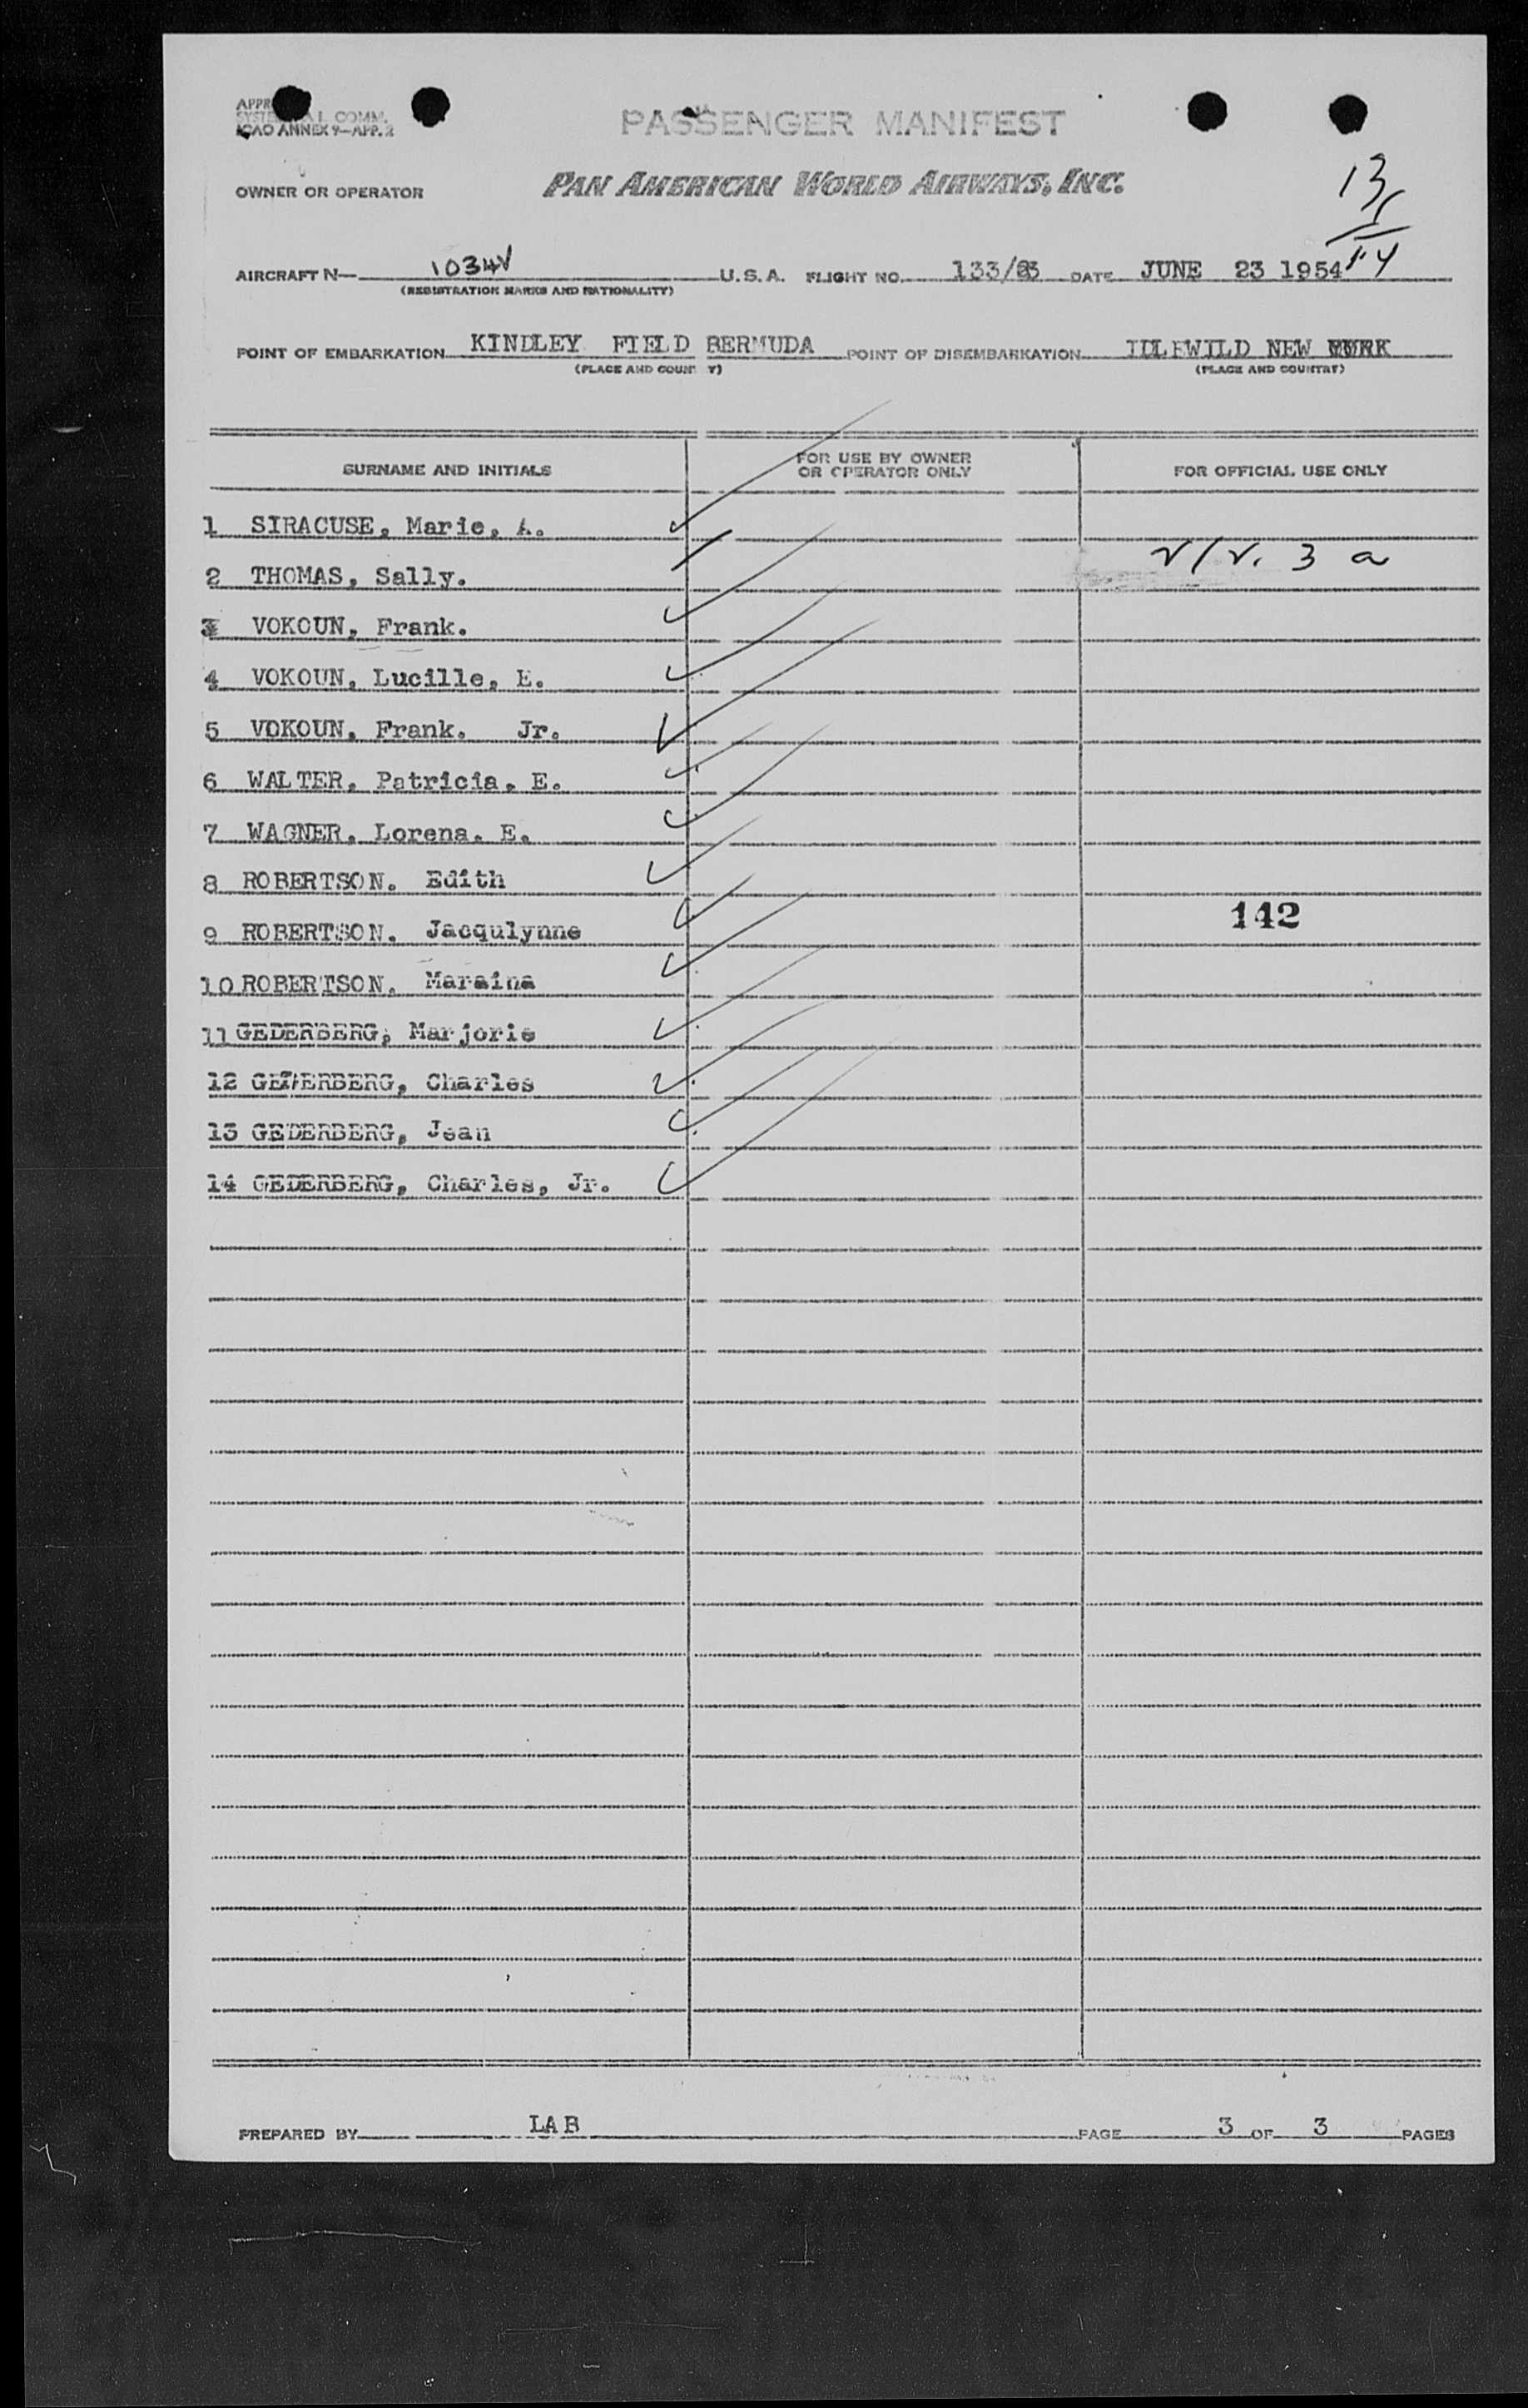 PASSENGER MANIFEST
ICAO ANNEX 9—APP. 2
OWNER OR OPERATOR PAN AMERICAN WORLD AIRWAYS, INC.
13
1 14
AIRCRAFT N— 1034V U.S.A. FLIGHT NO. 133/23 DATE JUNE 23 1954
(REGISTRATION MARKS AND NATIONALITY)
POINT OF EMBARKATION KINDLEY FIELD BERMUDA POINT OF DISEMBARKATION IDLEWILD NEW YORK
(PLACE AND COUNTRY) (PLACE AND COUNTRY)
SURNAME AND INITIALS FOR USE BY OWNER OR OPERATOR ONLY FOR OFFICIAL USE ONLY
1 SIRACUSE, Marie, A.
2 THOMAS, Sally. 3 a
3 VOKOUN, Frank.
4 VOKOUN, Lucille, E.
5 VOKOUN, Frank. Jr.
6 WALTER, Patricia, E.
7 WAGNER, Lorena. E.
8 ROBERTSON. Edith
9 ROBERTSON. Jacqulynne 142
10 ROBERTSON. Maraina
11 GEDERBERG, Marjorie
12 GEDERBERG, Charles
13 GEDERBERG, Jean
14 GEDERBERG, Charles, Jr.
PREPARED BY LAB PAGE 3 OF 3 PAGES